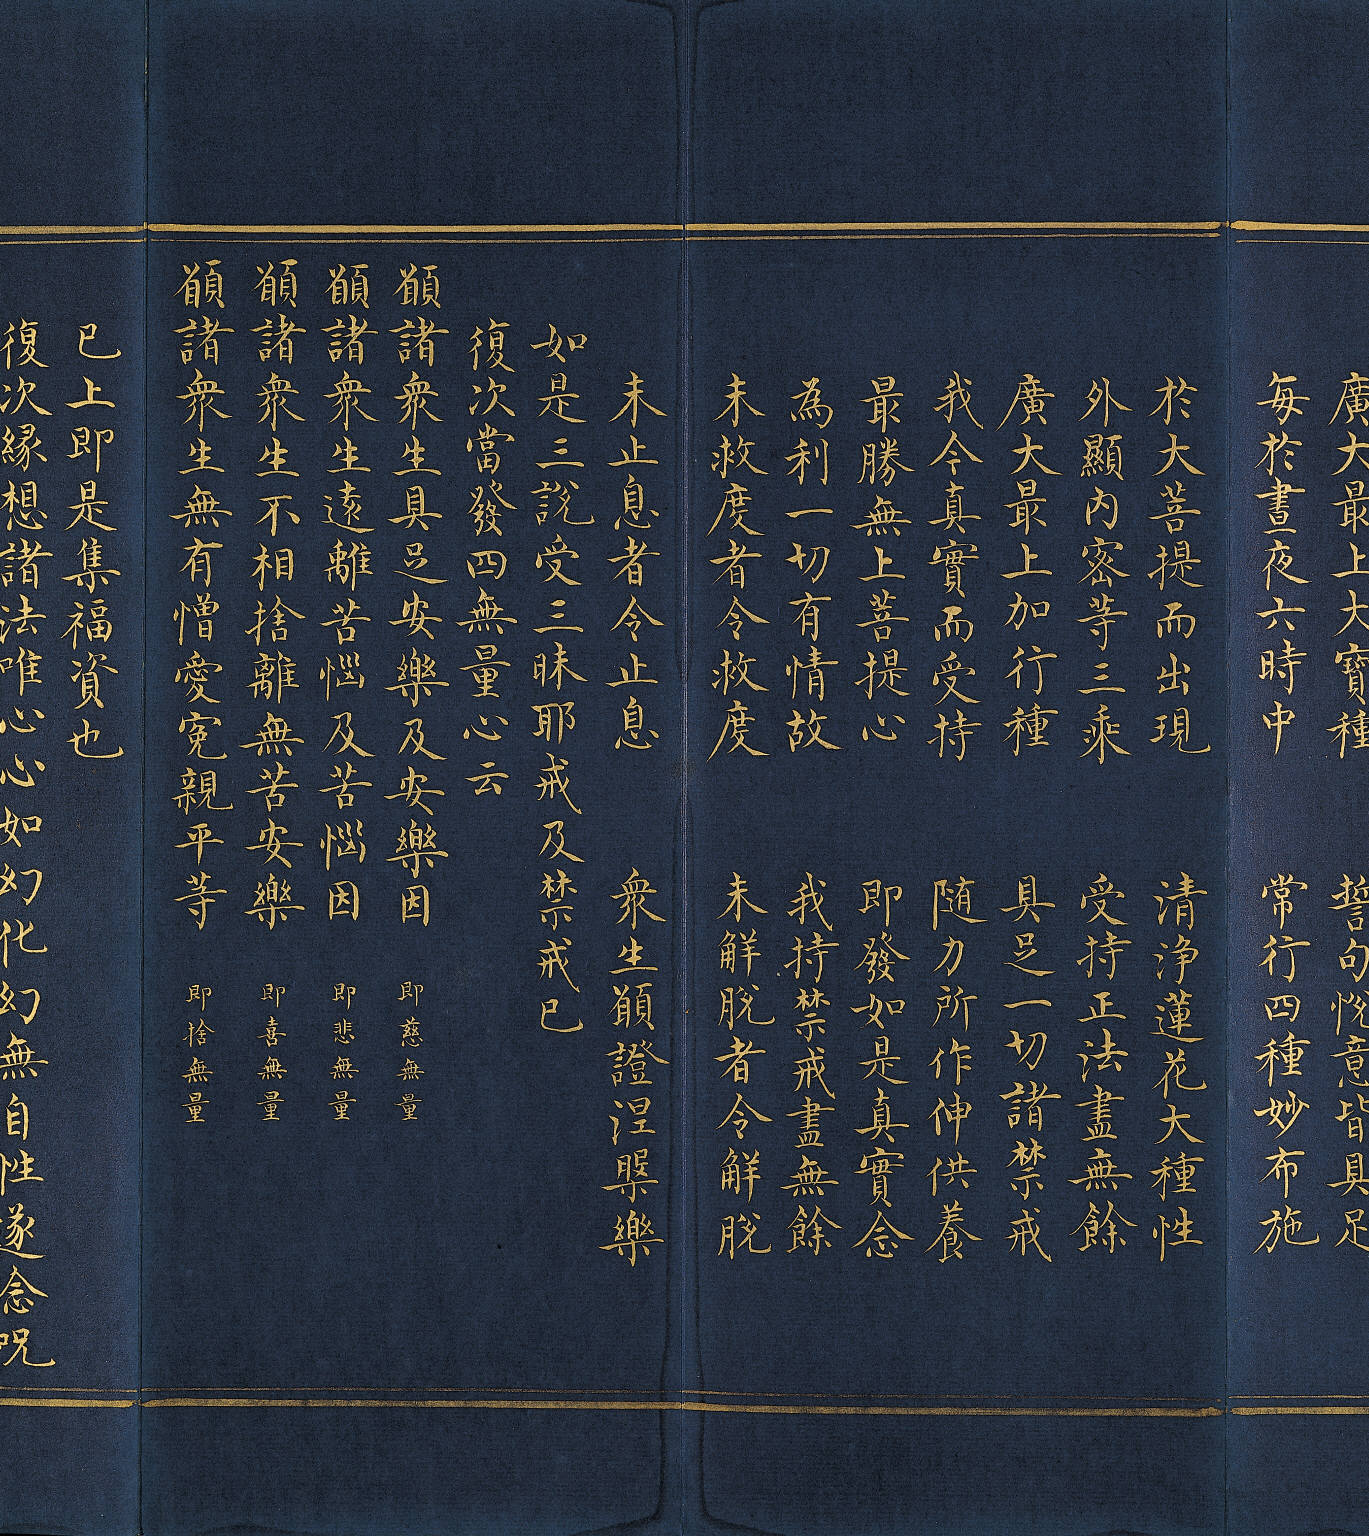 廣大最上大寶種　誓句悅意皆具足
每於晝夜六時中　常行四種妙布施
於大菩提而出現　清淨蓮花大種性
外顯內密等三乘　受持正法盡無餘
廣大最上加行種　具足一切諸禁戒
我今真實而受持　随力所作伸供養
最勝無上菩提心　即發如是真實念
為利一切有情故　我持禁戒盡無餘
未救度者令救度　未解脫者令解脫
未止息者令止息　衆生願證涅槃樂
如是三說受三昧耶戒及禁戒已
復次當發四無量心云
願諸衆生具足安樂及安樂因　即慈無量
願諸衆生遠離苦惱及苦惱因　即悲無量
願諸衆生不相捨離無苦安樂　即喜無量
願諸衆生無有憎愛寃親平等　即捨無量
已上即是集福資也
復次緣想諸法唯心心如幻化幻無自性遂念呪